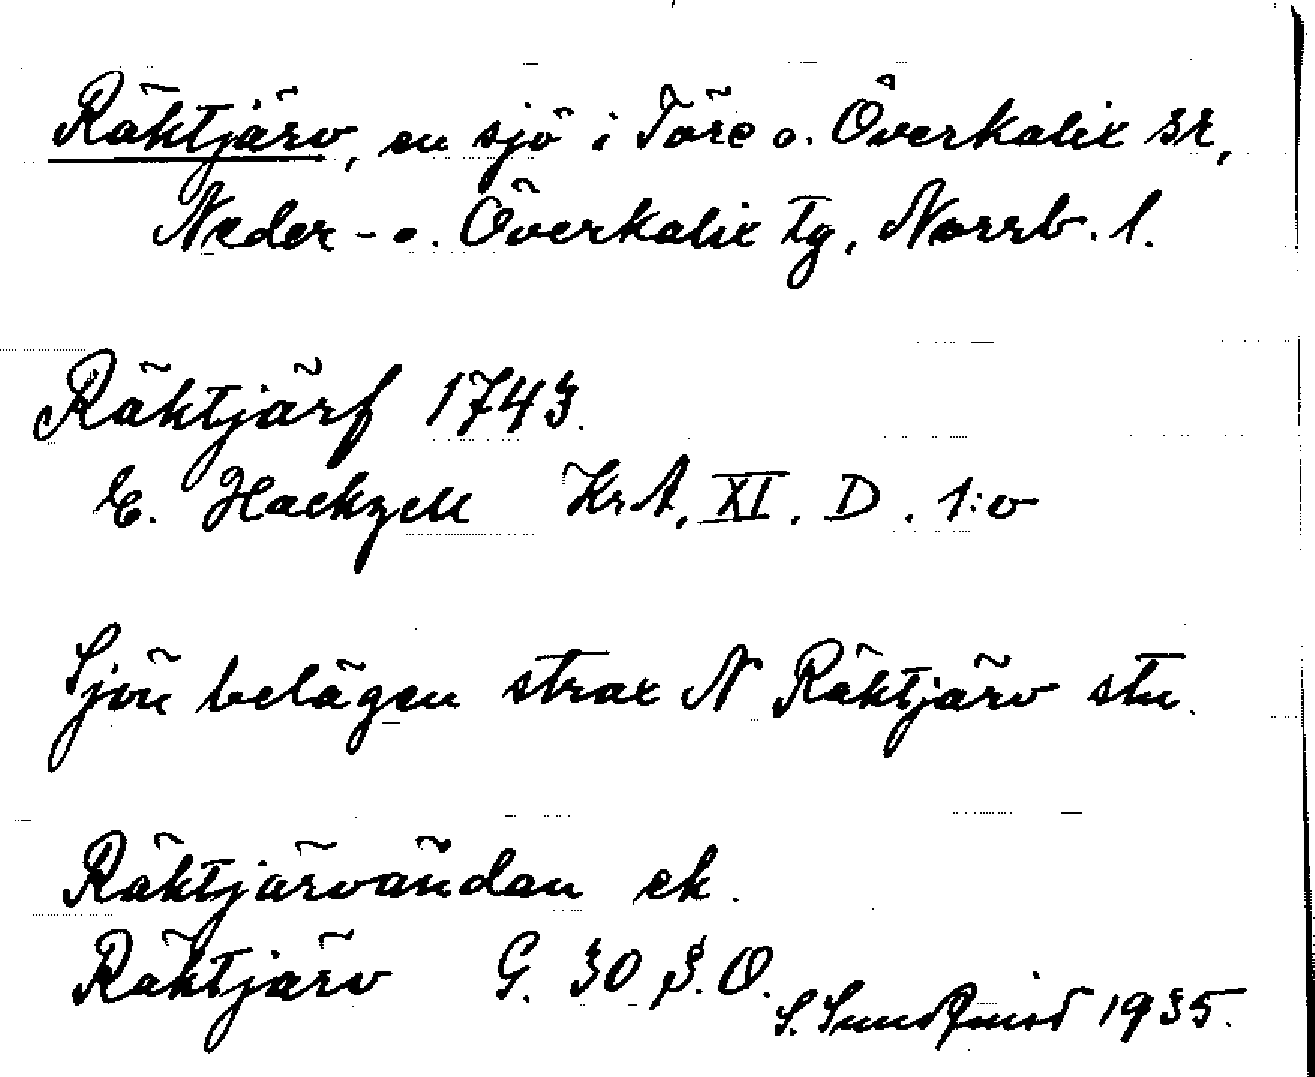 Räktjärv, en sjö i Töre o. Överkalix sr,
Neder- o. Överkalix tg, Norrb. l.
Räktjärf 1743.
E. Hackzell KrA. XI. D. 1:o
Sjön belägen strax N Räktjärv stn.
Räktjärvändan ek.
Räktjärv G. 30 S.O.
S. Sundqvist 1935.